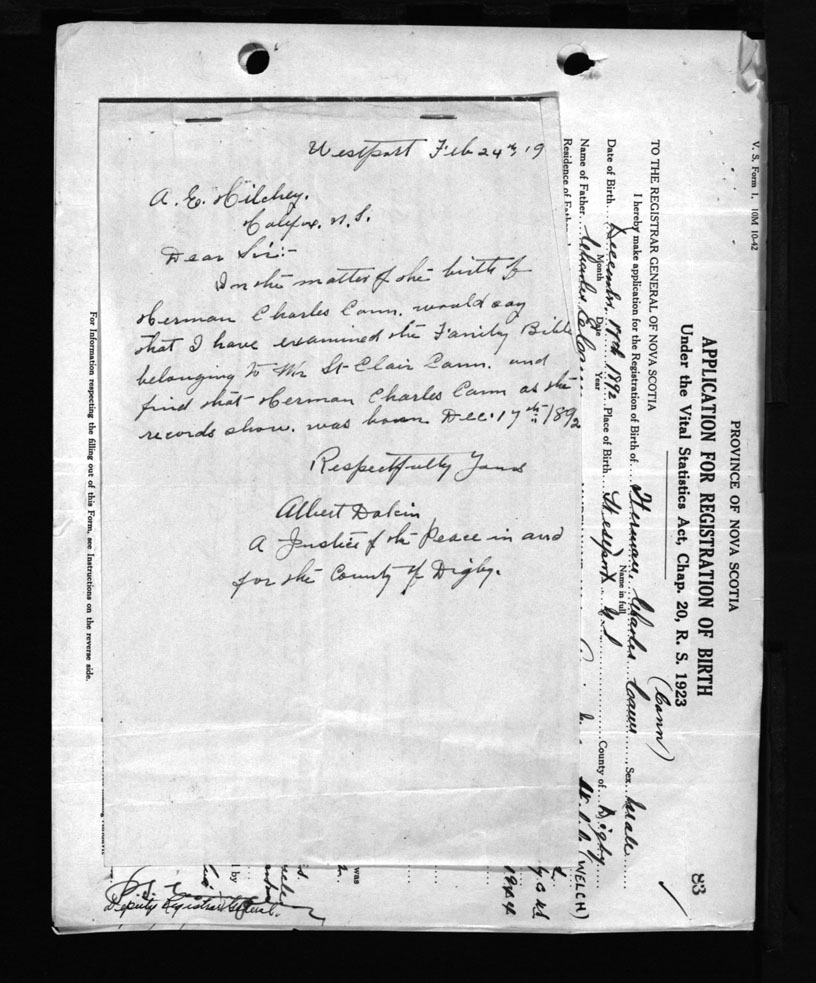 Westport Feb 24th, 19
A. E. Hilchey.
Halifax. N. S.
Dear Sir:-
In the matter of the birth of
Herman Charles Cann. would say
that I have examined the Family Bible
belonging to Mr St Clair Cann. and
find that Herman Charles Cann as the
records show. was born Dec. 17th 1892
Respectfully Yours
Albert Dakin
A Justice of the Peace in and
for the County of Digby.
V. S. Form 1. 10M 10-42
PROVINCE OF NOVA SCOTIA
83
APPLICATION FOR REGISTRATION OF BIRTH
Under the Vital Statistics Act, Chap. 20, R. S. 1923
TO THE REGISTRAR GENERAL OF NOVA SCOTIA
(Cann)
I hereby make application for the Registration of Birth of Herman Charles Sex Male
Name in full
Date of Birth December 17th 1892 Place of Birth Westport N S County of Digby
Month Day Year
Name of Father Charles
(WELCH)
Residence of Father
1944
was
by
Deputy Registrar General.
For Information respecting the filling out of this Form, see Instructions on the reverse side.